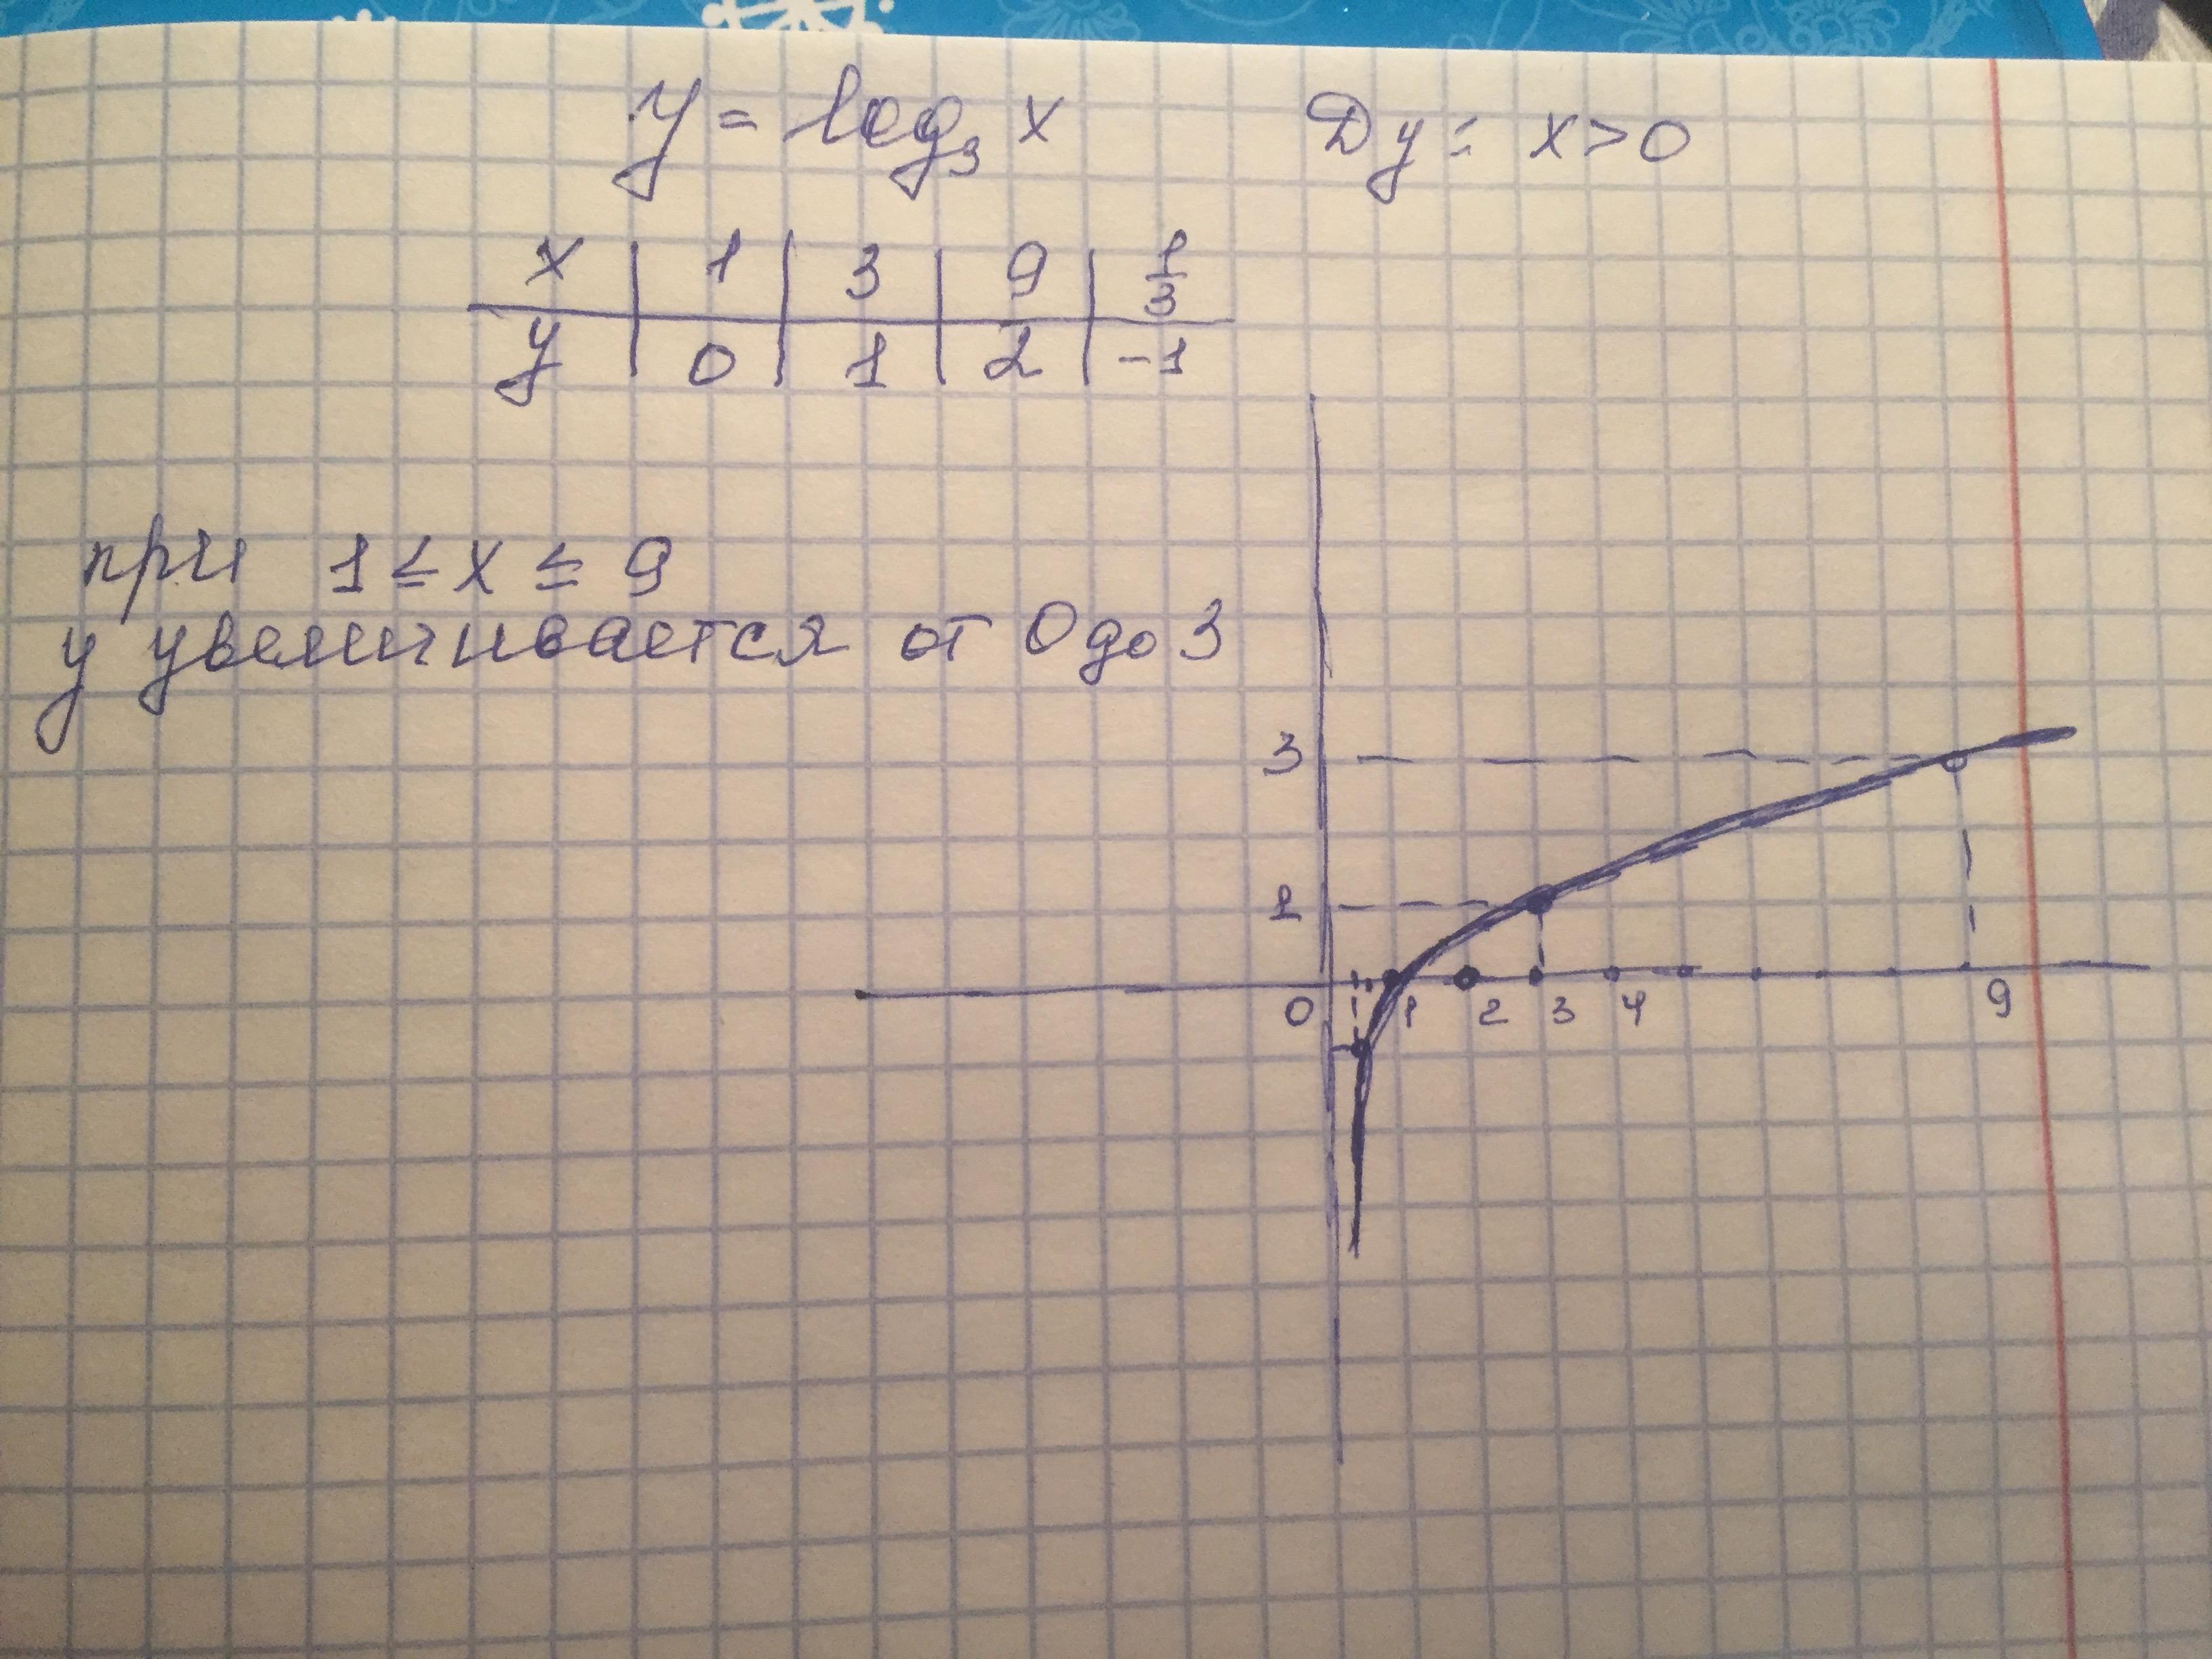 y = log₃ x Dy: x>0
x | 1 | 3 | 9 | 1/3
y | 0 | 1 | 2 | -1
при 1 ≤ x ≤ 9
y увеличивается от 0 до 3
3
1
0 1 2 3 4 9